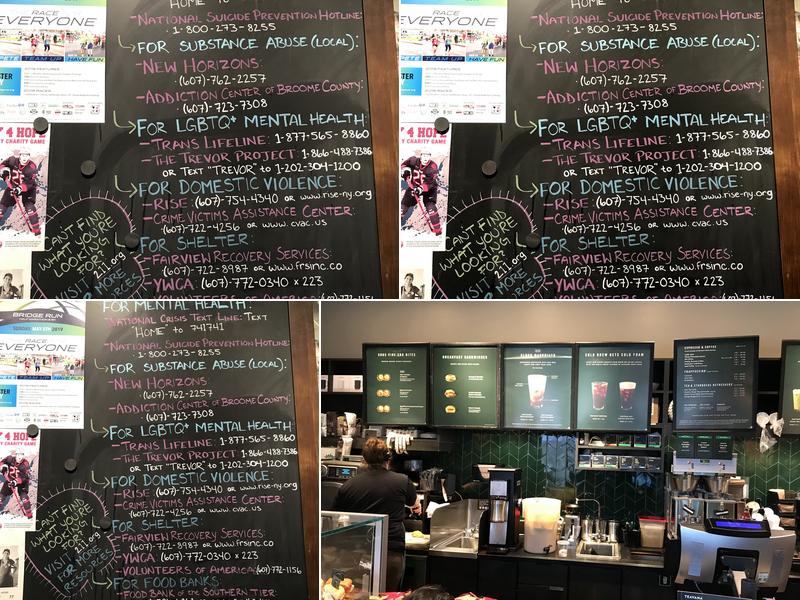 HOME" to
-NATIONAL SUICIDE PREVENTION HOTLINE:
·1-800-273-8255
FOR SUBSTANCE ABUSE (LOCAL):
-NEW HORIZONS:
·(607)-762-2257
-ADDICTION CENTER OF BROOME COUNTY:
·(607)-723-7308
FOR LGBTQ+ MENTAL HEALTH:
-TRANS LIFELINE: 1-877-565-8860
-THE TREVOR PROJECT: 1-866-488-7386
OR TEXT "TREVOR" to 1-202-304-1200
FOR DOMESTIC VIOLENCE:
-RISE: (607)-754-4340 OR www.rise-ny.org
-CRIME VICTIMS ASSISTANCE CENTER:
·(607)-722-4256 OR www.cvac.us
FOR SHELTER:
-FAIRVIEW RECOVERY SERVICES:
·(607)-722-8987 OR www.frsinc.co
-YWCA: (607)-772-0340 x 223
-VOLUNTEERS OF AMERICA
RACE
EVERYONE
TEAM UP HAVE FUN
Y 4 HOPE
CHARITY GAME
CAN'T FIND
WHAT YOU'RE
LOOKING
FOR?
VISIT 211.org
FOR MORE
RESOURCES
HOME" to
-NATIONAL SUICIDE PREVENTION HOTLINE:
·1-800-273-8255
FOR SUBSTANCE ABUSE (LOCAL):
-NEW HORIZONS:
·(607)-762-2257
-ADDICTION CENTER OF BROOME COUNTY:
·(607)-723-7308
FOR LGBTQ+ MENTAL HEALTH:
-TRANS LIFELINE: 1-877-565-8860
-THE TREVOR PROJECT: 1-866-488-7386
OR TEXT "TREVOR" to 1-202-304-1200
FOR DOMESTIC VIOLENCE:
-RISE: (607)-754-4340 OR www.rise-ny.org
-CRIME VICTIMS ASSISTANCE CENTER:
·(607)-722-4256 OR www.cvac.us
FOR SHELTER:
-FAIRVIEW RECOVERY SERVICES:
·(607)-722-8987 OR www.frsinc.co
-YWCA: (607)-772-0340 x 223
-VOLUNTEERS OF AMERICA
RACE
EVERYONE
TEAM UP HAVE FUN
Y 4 HOPE
CHARITY GAME
CAN'T FIND
WHAT YOU'RE
LOOKING
FOR?
VISIT 211.org
FOR MORE
RESOURCES
FOR MENTAL HEALTH:
NATIONAL CRISIS TEXT LINE: TEXT
"HOME" to 741741
-NATIONAL SUICIDE PREVENTION HOTLINE:
·1-800-273-8255
FOR SUBSTANCE ABUSE (LOCAL):
-NEW HORIZONS
·(607)-762-2257
-ADDICTION CENTER OF BROOME COUNTY:
·(607)-723-7308
FOR LGBTQ+ MENTAL HEALTH:
-TRANS LIFELINE: 1-877-565-8860
-THE TREVOR PROJECT 1-866-488-7386
OR TEXT "TREVOR" to 1-202-304-1200
FOR DOMESTIC VIOLENCE:
-RISE: (607)-754-4340 OR www.rise-ny.org
-CRIME VICTIMS ASSISTANCE CENTER:
·(607)-722-4256 OR www.cvac.us
FOR SHELTER:
-FAIRVIEW RECOVERY SERVICES:
·(607)-722-8987 OR www.frsinc.co
-YWCA: (607)-772-0340 x 223
-VOLUNTEERS OF AMERICA: (607)-772-1156
FOR FOOD BANKS:
-FOOD BANK OF THE SOUTHERN TIER:
BRIDGE RUN
SUNDAY MAY 5TH 2019
RACE
EVERYONE
TEAM UP HAVE FUN
Y 4 HOPE
CHARITY GAME
CAN'T FIND
WHAT YOU'RE
LOOKING
FOR?
VISIT 211.org
FOR MORE
RESOURCES
SOUS VIDE EGG BITES
BREAKFAST SANDWICHES
CLOUD MACCHIATO
COLD BREW GETS COLD FOAM
ESPRESSO & COFFEE
FRAPPUCCINO
TEA & STARBUCKS REFRESHERS
TEAVANA